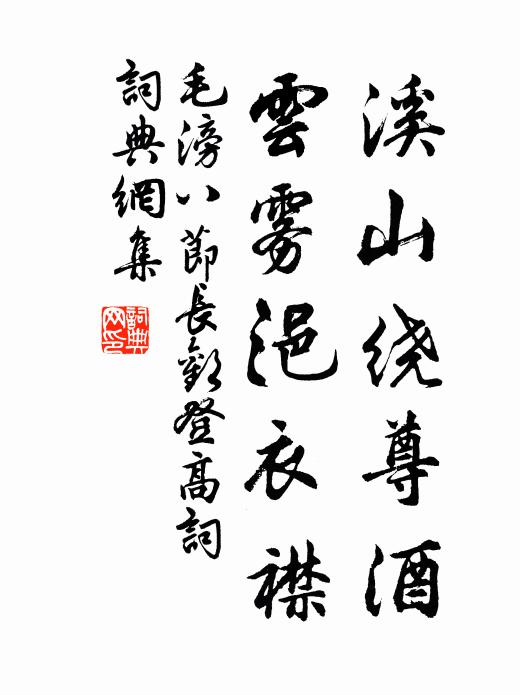 溪山绕尊酒
雲雾浥衣襟
毛滂八節長歡登高詞
詞典網集
詞典网印